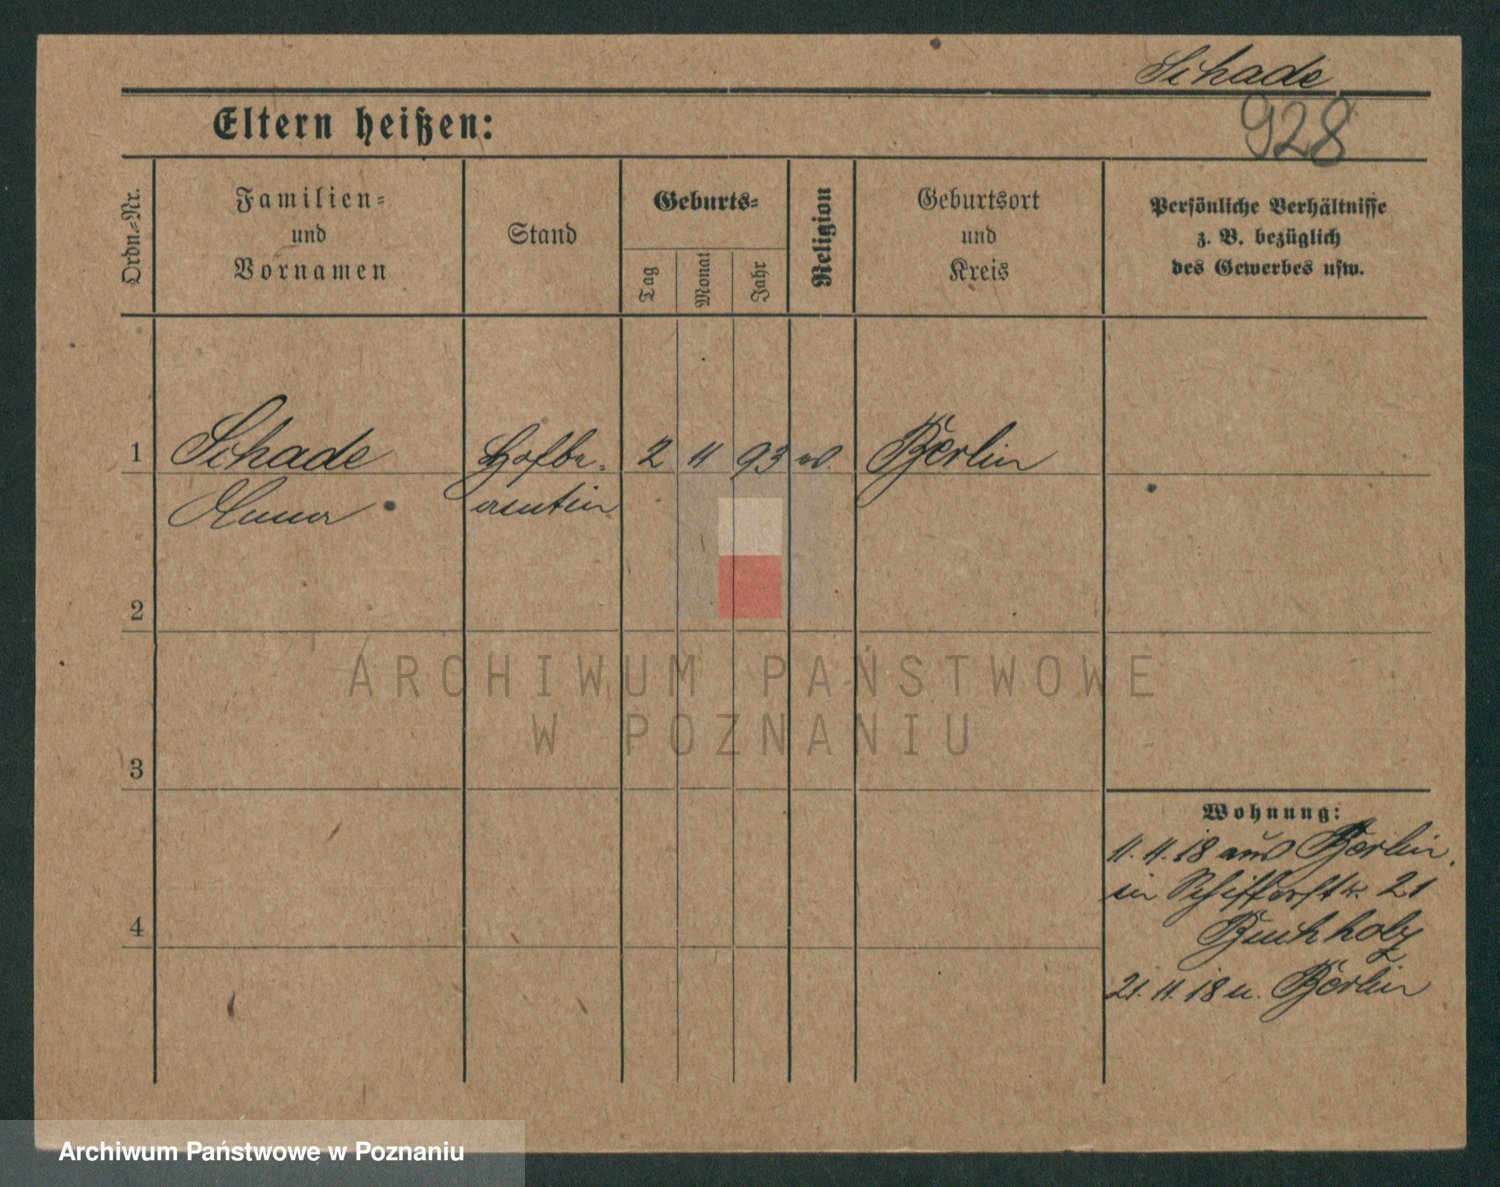 Schade
928
Eltern heißen:
Ordn.-Nr.
Familien-
und
Vornamen
Stand
Geburts-
Tag
Monat
Jahr
Religion
Geburtsort
und
Kreis
Persönliche Verhältnisse
z. B. bezüglich
des Gewerbes usw.
1
Schade
Hofbe-
2 11 93
Berlin
Anna
amtin
2
ARCHIWUM PAŃSTWOWE
W POZNANIU
3
Wohnung:
11. 11. 18 aus Berlin.
in Schifferstr. 21
Buchholz
4
21. 11. 18 n. Berlin
Archiwum Państwowe w Poznaniu